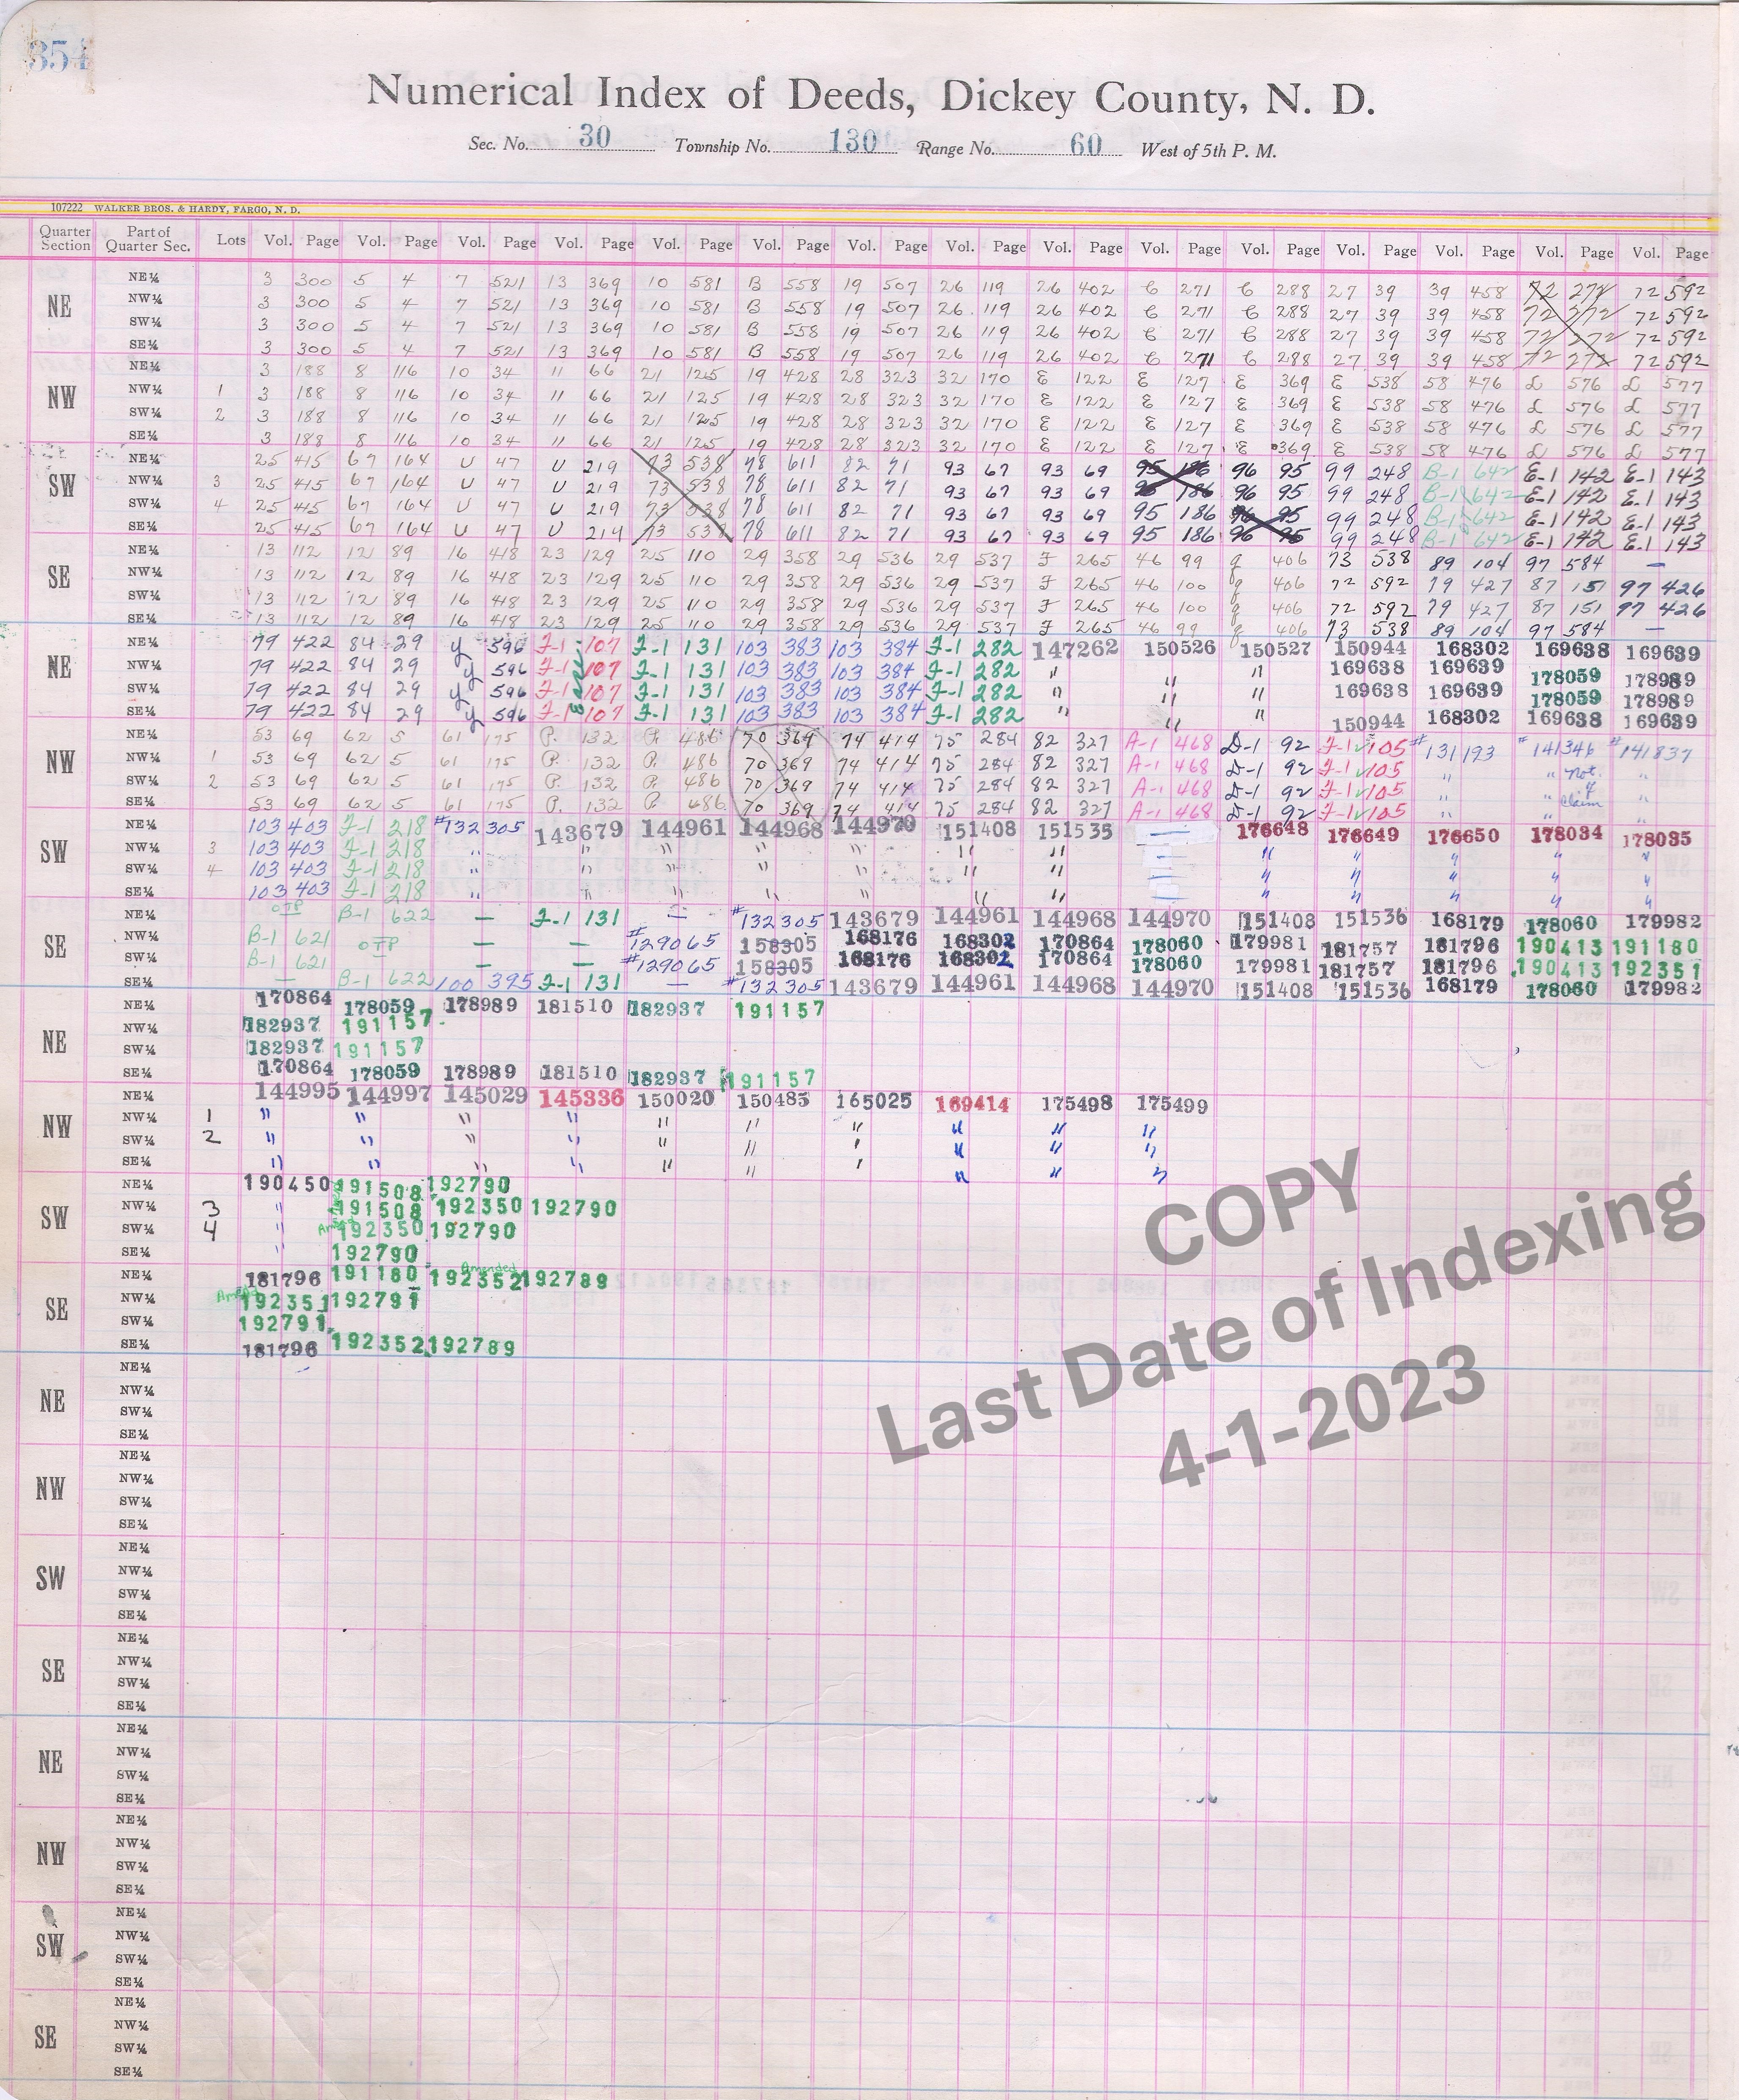 354
Numerical Index of Deeds, Dickey County, N. D.
Sec. No. 30 Township No. 130 Range No. 60 West of 5th P. M.
107222 WALKER BROS. & HARDY, FARGO, N. D.
Quarter Section Part of Quarter Sec. Lots Vol. Page Vol. Page Vol. Page Vol. Page Vol. Page Vol. Page Vol. Page Vol. Page Vol. Page Vol. Page Vol. Page Vol. Page Vol. Page Vol. Page Vol. Page
NE
NE¼ 3 300 5 4 7 521 13 369 10 581 B 558 19 507 26 119 26 402 C 271 C 288 27 39 39 458 72 272 72 592
NW¼ 3 300 5 4 7 521 13 369 10 581 B 558 19 507 26 119 26 402 C 271 C 288 27 39 39 458 72 272 72 592
SW¼ 3 300 5 4 7 521 13 369 10 581 B 558 19 507 26 119 26 402 C 271 C 288 27 39 39 458 72 272 72 592
SE¼ 3 300 5 4 7 521 13 369 10 581 B 558 19 507 26 119 26 402 C 271 C 288 27 39 39 458 72 272 72 592
NW
NE¼ 3 188 8 116 10 34 11 66 21 125 19 428 28 323 32 170 E 122 E 127 E 369 E 538 58 476 L 576 L 577
NW¼ 1 3 188 8 116 10 34 11 66 21 125 19 428 28 323 32 170 E 122 E 127 E 369 E 538 58 476 L 576 L 577
SW¼ 2 3 188 8 116 10 34 11 66 21 125 19 428 28 323 32 170 E 122 E 127 E 369 E 538 58 476 L 576 L 577
SE¼ 3 188 8 116 10 34 11 66 21 125 19 428 28 323 32 170 E 122 E 127 E 369 E 538 58 476 L 576 L 577
SW
NE¼ 25 415 67 164 U 47 U 219 73 538 78 611 82 71 93 67 93 69 95 186 96 95 99 248 B-1 642 E-1 142 E-1 143
NW¼ 3 25 415 67 164 U 47 U 219 73 538 78 611 82 71 93 67 93 69 95 186 96 95 99 248 B-1 642 E-1 142 E-1 143
SW¼ 4 25 415 67 164 U 47 U 219 73 538 78 611 82 71 93 67 93 69 95 186 96 95 99 248 B-1 642 E-1 142 E-1 143
SE¼ 25 415 67 164 U 47 U 219 73 538 78 611 82 71 93 67 93 69 95 186 96 95 99 248 B-1 642 E-1 142 E-1 143
SE
NE¼ 13 112 12 89 16 418 23 129 25 110 29 358 29 536 29 537 F 265 46 99 g 406 73 538 89 104 97 584 —
NW¼ 13 112 12 89 16 418 23 129 25 110 29 358 29 536 29 537 F 265 46 100 g 406 72 592 79 427 87 151 97 426
SW¼ 13 112 12 89 16 418 23 129 25 110 29 358 29 536 29 537 F 265 46 100 g 406 72 592 79 427 87 151 97 426
SE¼ 13 112 12 89 16 418 23 129 25 110 29 358 29 536 29 537 F 265 46 99 g 406 73 538 89 104 97 584 —
NE
NE¼ 79 422 84 29 y 596 F-1 107 F-1 131 103 383 103 384 F-1 282 147262 150526 150527 150944 168302 169638 169639
NW¼ 79 422 84 29 y 596 F-1 107 F-1 131 103 383 103 384 F-1 282 " " " 169638 169639 178059 178989
SW¼ 79 422 84 29 y 596 F-1 107 F-1 131 103 383 103 384 F-1 282 " " " 169638 169639 178059 178989
SE¼ 79 422 84 29 y 596 F-1 107 F-1 131 103 383 103 384 F-1 282 " " " 150944 168302 169638 169639
NW
NE¼ 53 69 62 5 61 175 P. 132 P. 486 70 369 74 414 75 284 82 327 A-1 468 D-1 92 F-1 105 #131193 #141346 #141837
NW¼ 1 53 69 62 5 61 175 P. 132 P. 486 70 369 74 414 75 284 82 327 A-1 468 D-1 92 F-1 105 " " not. "
SW¼ 2 53 69 62 5 61 175 P. 132 P. 486 70 369 74 414 75 284 82 327 A-1 468 D-1 92 F-1 105 " " claim "
SE¼ 53 69 62 5 61 175 P. 132 P. 486 70 369 74 414 75 284 82 327 A-1 468 D-1 92 F-1 105 " " "
SW
NE¼ 103 403 F-1 218 #132305 143679 144961 144968 144970 151408 151535 — 176648 176649 176650 178034 178035
NW¼ 3 103 403 F-1 218 " " " " " " " — " " " " "
SW¼ 4 103 403 F-1 218 " " " " " " " — " " " " "
SE¼ 103 403 F-1 218 " " " " " " — " " " " "
SE
NE¼ OTP B-1 622 — F-1 131 — #132305 143679 144961 144968 144970 151408 151536 168179 178060 179982
NW¼ B-1 621 OTP — — #129065 158305 168176 168302 170864 178060 179981 181757 181796 190413 191180
SW¼ B-1 621 — — #129065 158305 168176 168302 170864 178060 179981 181757 181796 190413 192351
SE¼ — B-1 622 100 395 F-1 131 — #132305 143679 144961 144968 144970 151408 151536 168179 178060 179982
NE
NE¼ 170864 178059 178989 181510 182937 191157
NW¼ 182937 191157
SW¼ 182937 191157
SE¼ 170864 178059 178989 181510 182937 191157
NW
NE¼ 144995 144997 145029 145336 150020 150485 165025 169414 175498 175499
NW¼ 1 " " " " " " " " " "
SW¼ 2 " " " " " " " " " "
SE¼ " " " " " " " " " "
SW
NE¼ 190450 191508 192790
NW¼ 3 " 191508 192350 192790
SW¼ 4 " 192350 192790
SE¼ " 192790
SE
NE¼ 181796 191180 Amended 192352 192789
NW¼ 192351 192791
SW¼ 192791
SE¼ 181796 192352 192789
NE
NE¼
NW¼
SW¼
SE¼
NW
NE¼
NW¼
SW¼
SE¼
SW
NE¼
NW¼
SW¼
SE¼
SE
NE¼
NW¼
SW¼
SE¼
NE
NE¼
NW¼
SW¼
SE¼
NW
NE¼
NW¼
SW¼
SE¼
SW
NE¼
NW¼
SW¼
SE¼
SE
NE¼
NW¼
SW¼
SE¼
COPY
Last Date of Indexing
4-1-2023